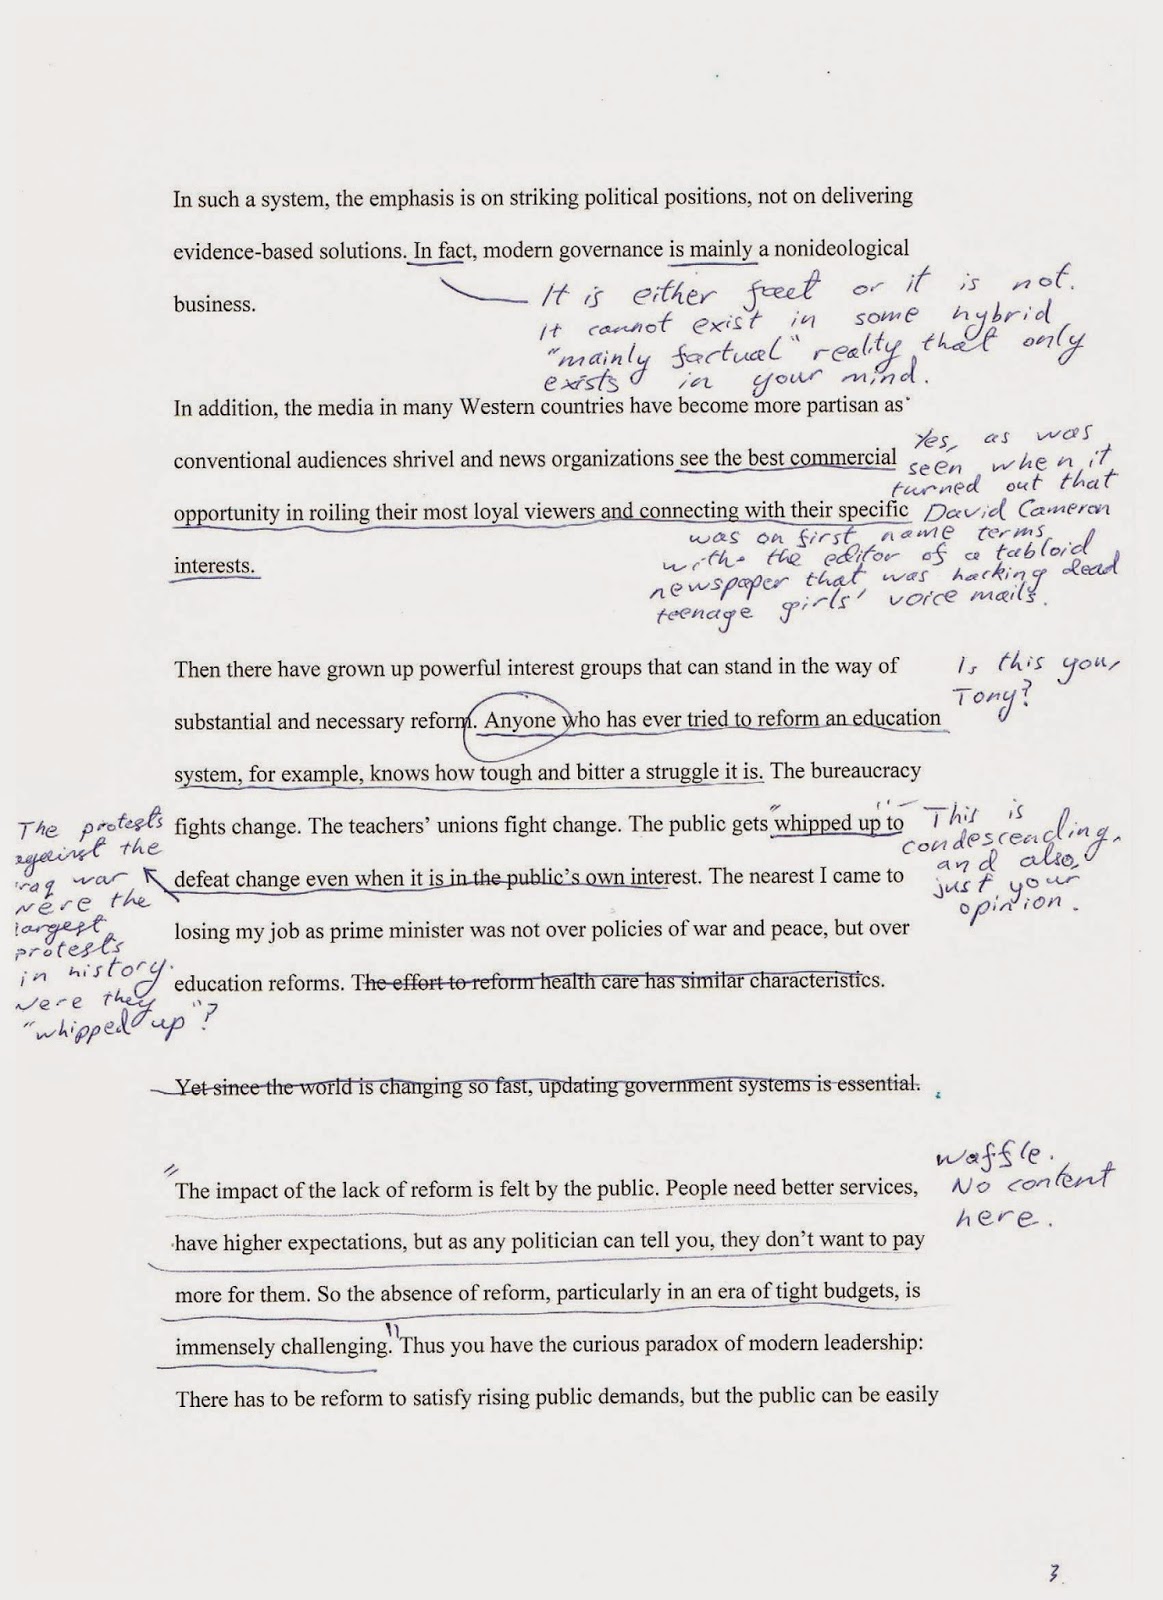 In such a system, the emphasis is on striking political positions, not on delivering
evidence-based solutions. In fact, modern governance is mainly a nonideological
business.
It is either fact or it is not.
It cannot exist in some hybrid
"mainly factual" reality that only
exists in your mind.
In addition, the media in many Western countries have become more partisan as
conventional audiences shrivel and news organizations see the best commercial
opportunity in roiling their most loyal viewers and connecting with their specific
interests.
Yes, as was
seen when it
turned out that
David Cameron
was on first name terms
with the editor of a tabloid
newspaper that was hacking dead
teenage girls' voice mails.
Then there have grown up powerful interest groups that can stand in the way of
substantial and necessary reform. Anyone who has ever tried to reform an education
system, for example, knows how tough and bitter a struggle it is. The bureaucracy
fights change. The teachers' unions fight change. The public gets "whipped up to
defeat change even when it is in the public's own interest. The nearest I came to
losing my job as prime minister was not over policies of war and peace, but over
education reforms. The effort to reform health care has similar characteristics.
Is this you,
Tony?
This is
condescending,
and also,
just your
opinion.
The protests
against the
Iraq war
were the
largest
protests
in history.
Were they
"whipped up"?
Yet since the world is changing so fast, updating government systems is essential.
"The impact of the lack of reform is felt by the public. People need better services,
have higher expectations, but as any politician can tell you, they don't want to pay
more for them. So the absence of reform, particularly in an era of tight budgets, is
immensely challenging." Thus you have the curious paradox of modern leadership:
There has to be reform to satisfy rising public demands, but the public can be easily
waffle.
No content
here.
3